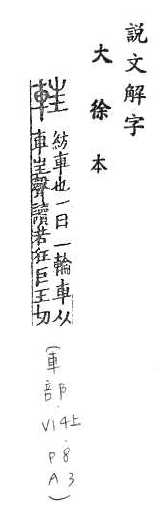 説文解字
大徐本
䡛 紡車也一曰一輪車从
車㞷聲讀若狂巨王切
(車部.V14上.P8A3)